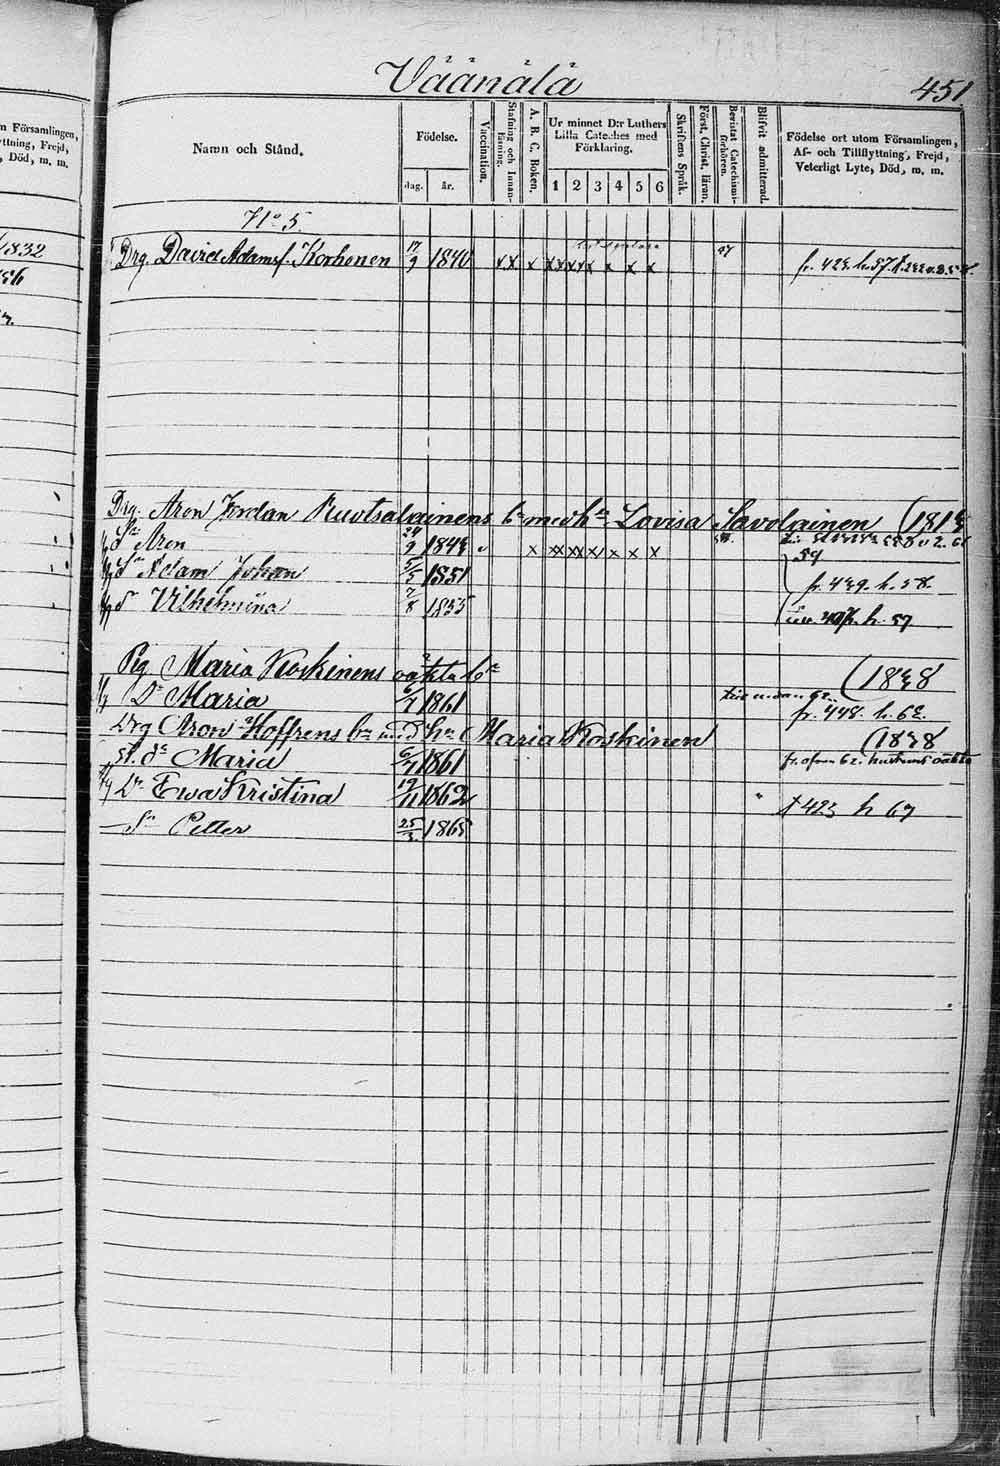 Väänälä
451
n Församlingen,
yttning, Frejd,
, Död, m. m.
Namn och Stånd.
Födelse.
dag.
år.
Vaccination.
Stafning och Innan-
läsning.
A. B. C. Boken.
Ur minnet D:r Luthers
Lilla Cateches med
Förklaring.
1 2 3 4 5 6
Skriftens Språk.
Först. Christ. läran.
Bevistat Catechismi-
förhören.
Blifvit admitterad.
Födelse ort utom Församlingen,
Af- och Tillflyttning, Frejd,
Veterligt Lyte, Död, m. m.
1832
No 5
Drg. David Adamsf. Korhonen 17/9 1840 x x x x x x x x x x x x 57 fr. 423. h. 57.
Drg. Aron Jordan Ruotsalainens bn med hn Lovisa Savolainen (1813
Sn Aron 24/9 1843 x x x x x x x x x
59
Sn Adam Johan 5/5 1851 fr. 439. h. 58.
d Vilhelmina 7/8 1855 h. 57
Pig Maria Koskinens oäkta bn (1838
Dr Maria 6/7 1861 fr. 448. h. 62.
Drg Aron Hoffrens bn med hn Maria Koskinen (1838
st. dr Maria 6/7 1861 hustruns oäkta
Dr Ewa Kristina 19/11 1862 " t 423 h 67
Sn Petter 25/3 1865